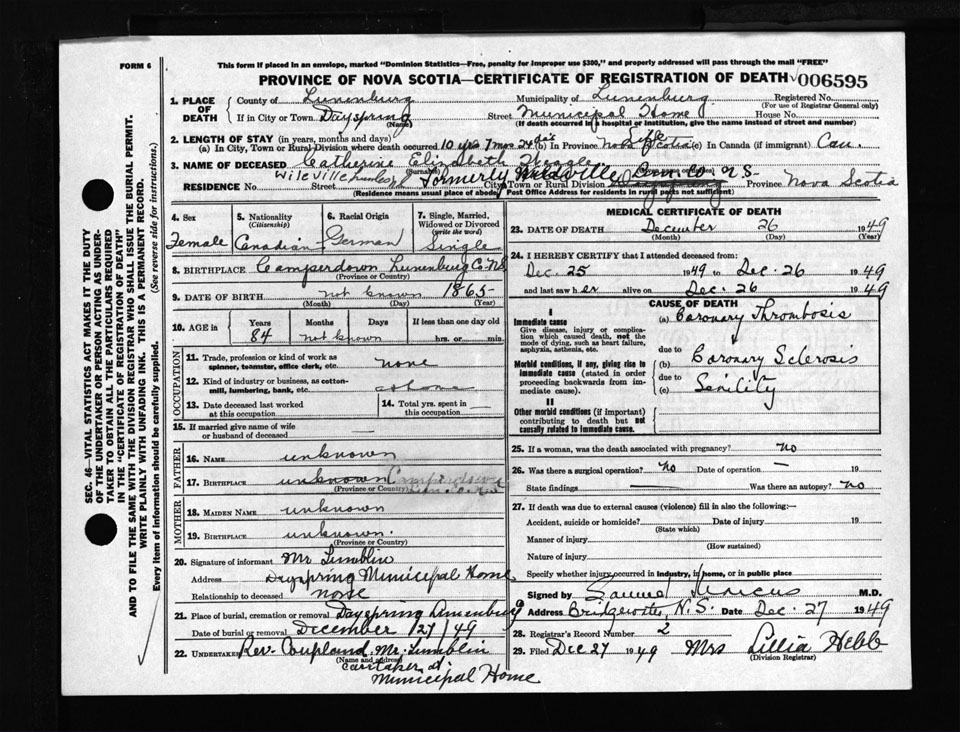 FORM 6
This form if placed in an envelope, marked "Dominion Statistics—Free, penalty for improper use $300," and properly addressed will pass through the mail "FREE"
PROVINCE OF NOVA SCOTIA—CERTIFICATE OF REGISTRATION OF DEATH 006595
1. PLACE OF DEATH
County of Lunenburg Municipality of Lunenburg Registered No.
(For use of Registrar General only)
If in City or Town Dayspring Street Municipal Home House No.
(Name) (If death occurred in a hospital or institution, give the name instead of street and number)
2. LENGTH OF STAY (in years, months and days)
(a) In City, Town or Rural Division where death occurred 10 yrs 7 mos 24 da's (b) In Province Life Nova Scotia (c) In Canada (if immigrant) Can.
3. NAME OF DECEASED Catherine Elizabeth
(Surname)
RESIDENCE No. Wileville Street formerly City, Town or Rural Division Province Nova Scotia
(Residence means usual place of abode, Post Office Address for residents in rural parts not sufficient)
4. Sex
Female
5. Nationality
(Citizenship)
Canadian
6. Racial Origin
German
7. Single, Married, Widowed or Divorced
(write the word)
Single
8. BIRTHPLACE Camperdown Lunenburg Co. N.S
(Province or Country)
9. DATE OF BIRTH not known 1865
(Month) (Day) (Year)
10. AGE in
Years Months Days If less than one day old
84 not known hrs. or min.
OCCUPATION
11. Trade, profession or kind of work as spinner, teamster, office clerk, etc. none
12. Kind of industry or business, as cotton-mill, lumbering, bank, etc.
13. Date deceased last worked at this occupation
14. Total yrs. spent in this occupation
15. If married give name of wife or husband of deceased
FATHER
16. NAME unknown
17. BIRTHPLACE unknown Camperdown
(Province or Country)
MOTHER
18. MAIDEN NAME unknown
19. BIRTHPLACE unknown.
(Province or Country)
20. Signature of informant Mr
Address Dayspring Municipal Home
Relationship to deceased none
21. Place of burial, cremation or removal Dayspring
Date of burial or removal December 27/49
22. UNDERTAKER Rev. Coupland. Mr.
(Name and address)
caretaker at
Municipal Home
MEDICAL CERTIFICATE OF DEATH
23. DATE OF DEATH December 26 1949
(Month) (Day) (Year)
24. I HEREBY CERTIFY that I attended deceased from:
Dec. 25 1949 to Dec. 26 1949
and last saw her alive on Dec. 26 1949
CAUSE OF DEATH
I
Immediate cause
Give disease, injury or complication which caused death, not the mode of dying, such as heart failure, asphyxia, asthenia, etc.
(a) Coronary Thrombosis
due to
Morbid conditions, if any, giving rise to immediate cause (stated in order proceeding backwards from immediate cause).
(b) Coronary Sclerosis
due to
(c) Senility
II
Other morbid conditions (if important) contributing to death but not causally related to immediate cause.
25. If a woman, was the death associated with pregnancy? no
26. Was there a surgical operation? no Date of operation — 19
State findings Was there an autopsy? no
27. If death was due to external causes (violence) fill in also the following:—
Accident, suicide or homicide? Date of injury 19
(State which)
Manner of injury
(How sustained)
Nature of injury
Specify whether injury occurred in industry, in home, or in public place
Signed by Samuel Marcus M.D.
Address Bridgewater, N.S. Date Dec. 27 1949
28. Registrar's Record Number 2
29. Filed Dec 27 1949 Mrs Lillia Hebb
(Division Registrar)
SEC. 46—VITAL STATISTICS ACT MAKES IT THE DUTY OF THE UNDERTAKER OR PERSON ACTING AS UNDERTAKER TO OBTAIN ALL THE PARTICULARS REQUIRED IN THE "CERTIFICATE OF REGISTRATION OF DEATH" AND TO FILE THE SAME WITH THE DIVISION REGISTRAR WHO SHALL ISSUE THE BURIAL PERMIT.
WRITE PLAINLY WITH UNFADING INK. THIS IS A PERMANENT RECORD.
Every item of information should be carefully supplied. (See reverse side for instructions.)